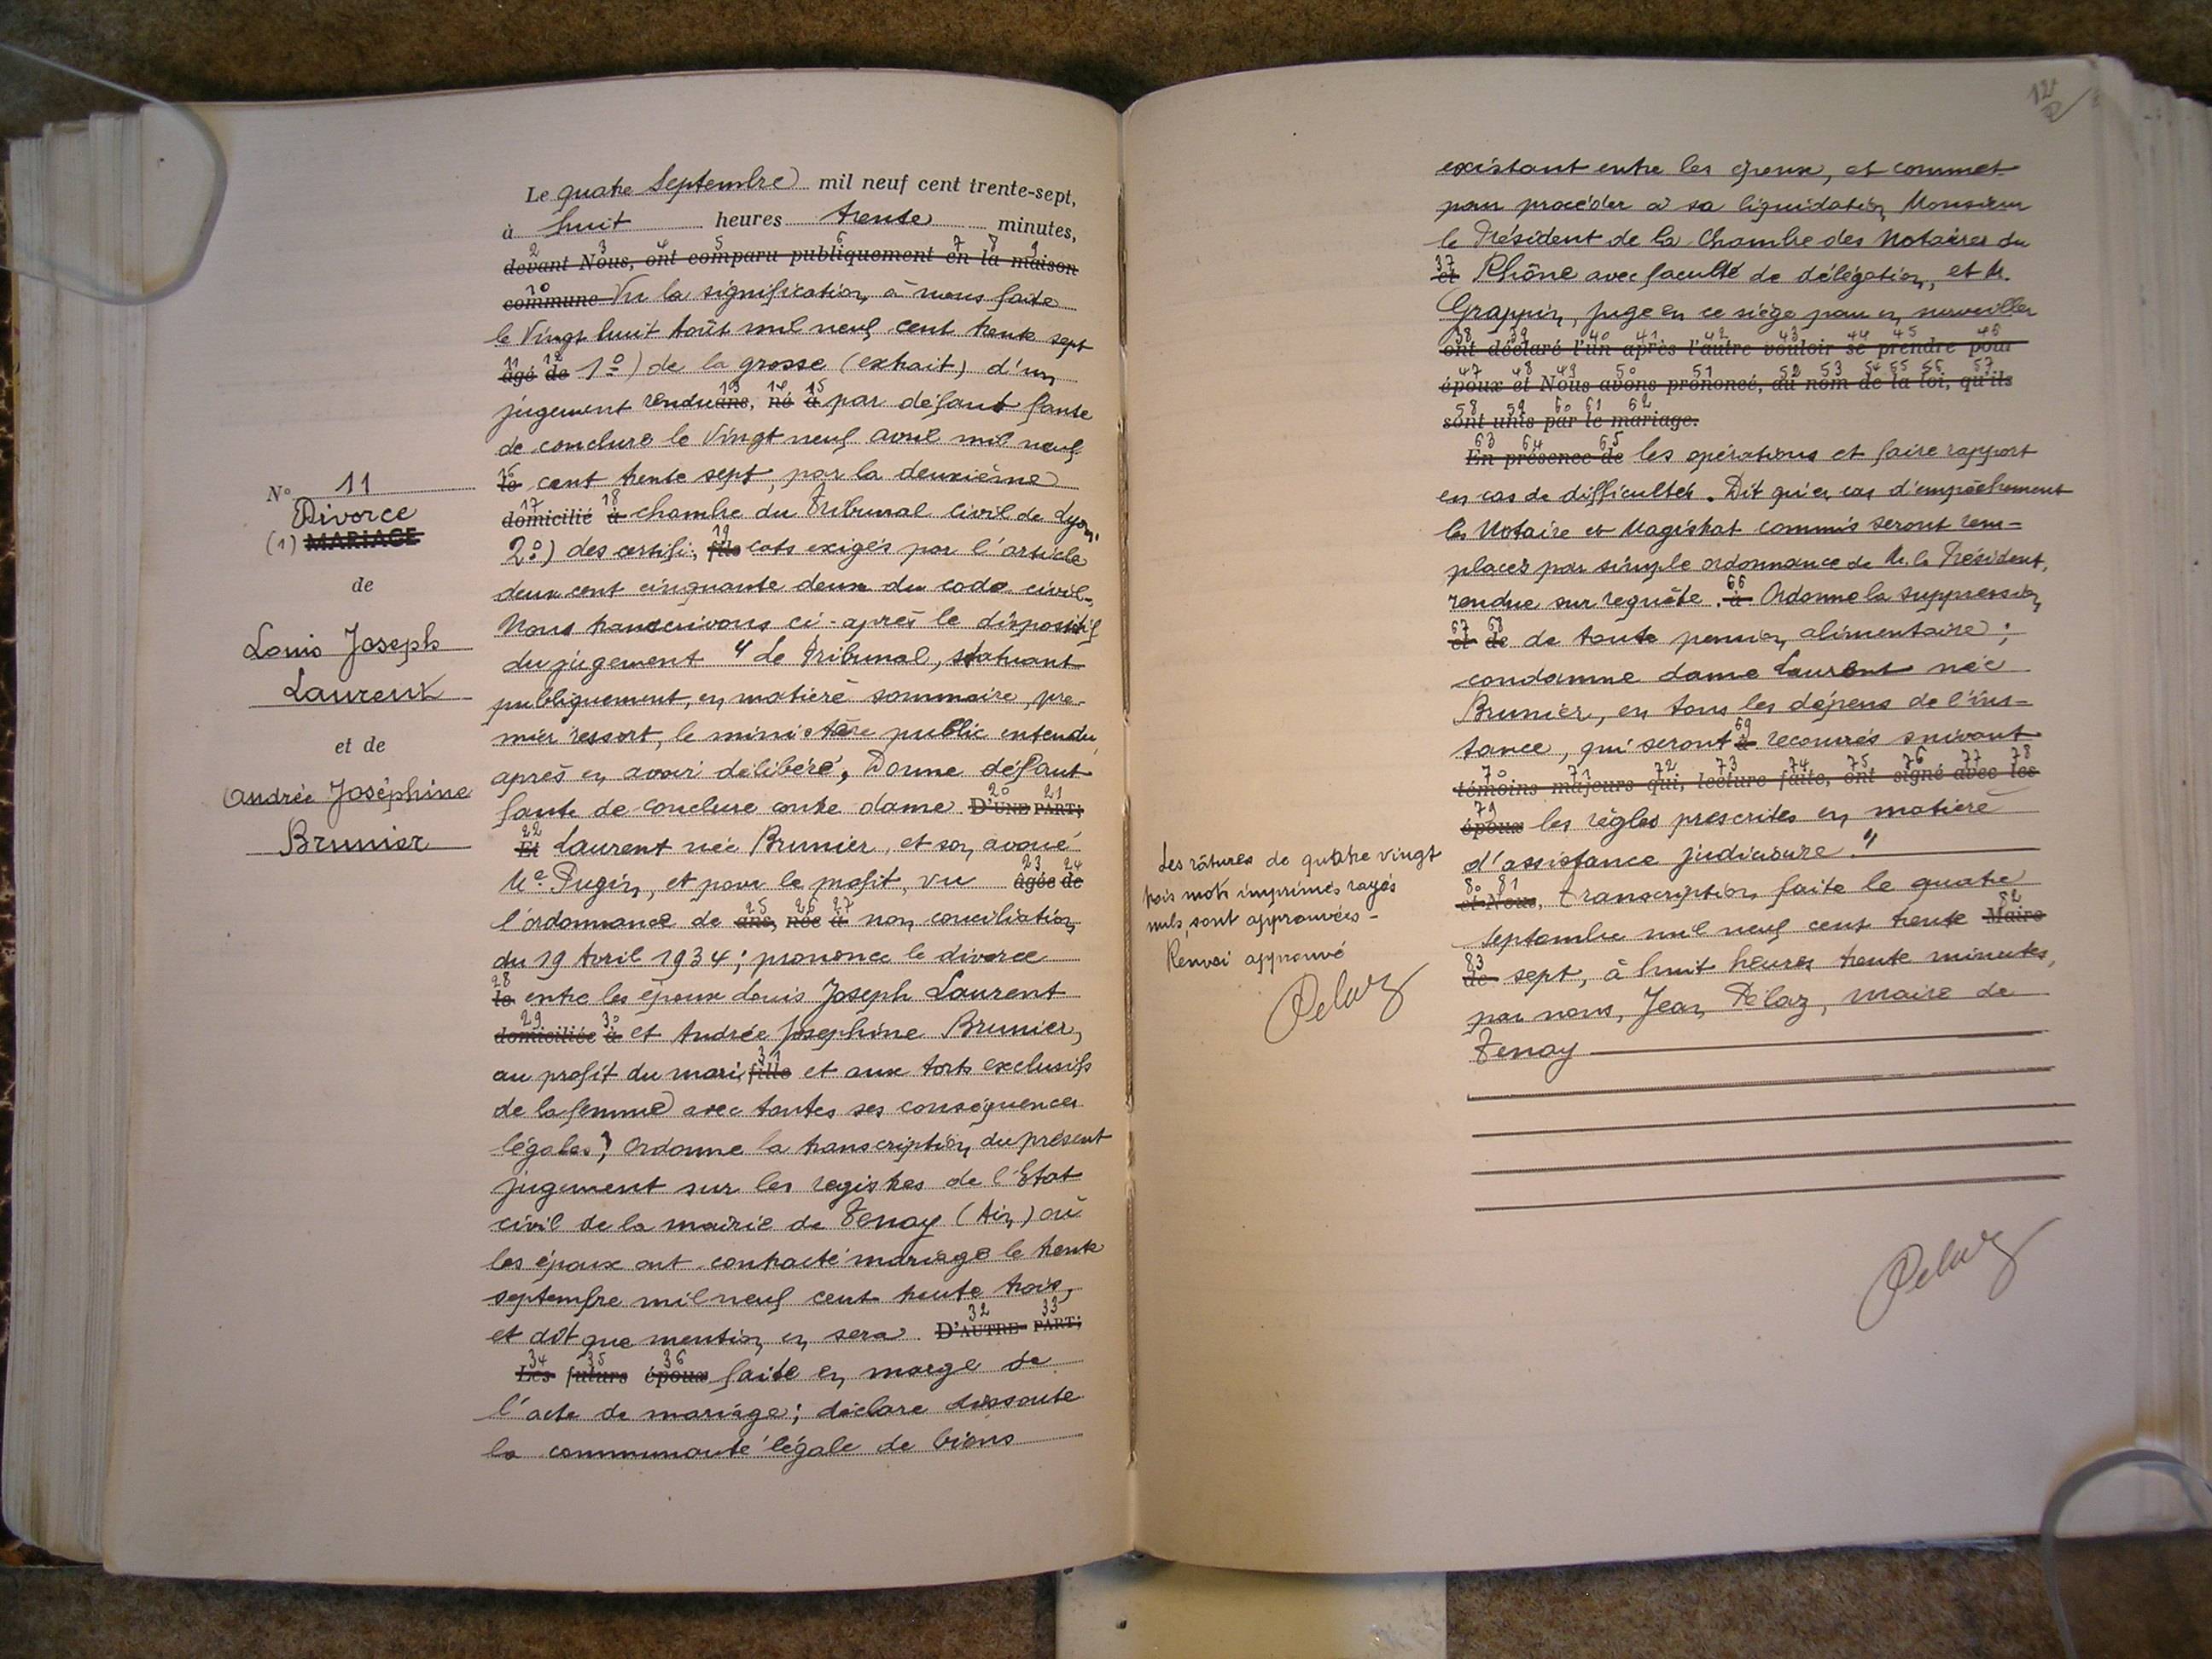 N° 11
Divorce
(1) MARIAGE
de
Louis Joseph
Laurent
et de
Andrée Joséphine
Brunier
Le quatre Septembre mil neuf cent trente-sept,
à huit heures trente minutes,
2 3 4 5 6 7 8 9
devant Nous, ont comparu publiquement en la maison
10
commune Vu la signification, à nous faite
le Vingt huit Août mil neuf cent trente sept
11 12
âgé de 1°) de la grosse (extrait) d'un
13 14 15
jugement rendu ans, né à par défaut faute
de conclure le Vingt neuf avril mil neuf
16
le cent trente sept, par la deuxième
17 18
domicilié à chambre du Tribunal civil de Lyon,
19
2°) des certifi- fils cats exigés par l'article
deux cent cinquante deux du code civil-,
Nous transcrivons ci-après le dispositif
du jugement " Le Tribunal, statuant
publiquement, en matière sommaire, pre-
mier ressort, le ministère public entendu,
après en avoir délibéré, Donne défaut
20 21
faute de conclure contre dame D'UNE PART;
22
Et Laurent née Brunier, et son avoué
23 24
Me Pugin, et pour le profit, vu âgée de
25 26 27
l'ordonnance de ans, née à non conciliation
du 19 Avril 1934; prononce le divorce
28
le entre les époux Louis Joseph Laurent
29 30
domiciliée à et Andrée Josephine Brunier,
31
au profit du mari, fille et aux torts exclusifs
de la femme avec toutes ses conséquences
légales; Ordonne la transcription du présent
jugement sur les registres de l'Etat
civil de la mairie de Tenay (Ain) où
les époux ont contracté mariage le trente
septembre mil neuf cent trente trois,
32 33
et dit que mention en sera D'AUTRE PART;
34 35 36
Les futurs époux faite en marge de
l'acte de mariage; déclare dissoute
la communauté légale de biens
12
existant entre les époux, et commet
pour procéder à sa liquidation Monsieur
le Président de la Chambre des Notaires du
37
et Rhône avec faculté de délégation, et M.
Grappin, juge en ce siège pour en surveiller
38 39 40 41 42 43 44 45 46
ont déclaré l'un après l'autre vouloir se prendre pour
47 48 49 50 51 52 53 54 55 56 57
époux et Nous avons prononcé, au nom de la loi, qu'ils
58 59 60 61 62
sont unis par le mariage.
63 64 65
En présence de les opérations et faire rapport
en cas de difficultés. Dit qu'en cas d'empêchement
les Notaire et Magistrat commis seront rem-
placés par simple ordonnance de M. le Président,
66
rendue sur requête. à Ordonne la suppression
67 68
et de de toute pension alimentaire;
condamne dame Laurent née
Brunier, en tous les dépens de l'ins-
69
tance, qui seront à recouvrés suivant
70 71 72 73 74 75 76 77 78
témoins majeurs qui, lecture faite, ont signé avec les
79
époux les règles prescrites en matière
d'assistance judiciaire."
80 81
et Nous, Transcription faite le quatre
82
septembre mil neuf cent trente Maire
83
de sept, à huit heures trente minutes,
par nous, Jean Pélaz, Maire de
Tenay
Les râtures de quatre vingt
trois mots imprimés rayés
nuls, sont approuvées -
Renvoi approuvé
Pelaz
Pelaz